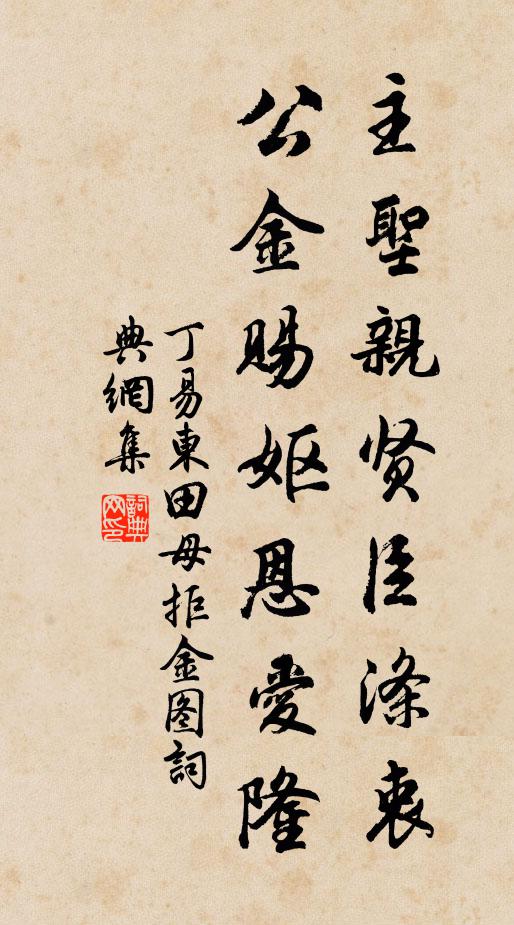 主聖親賢臣滌衷
公金賜妪恩愛隆
丁易東田母拒金图詞
典網集
詞典網印